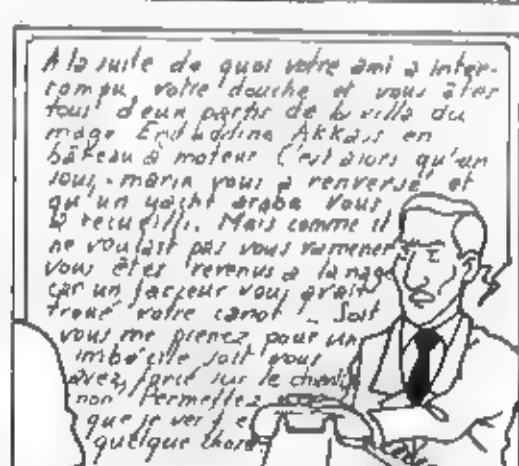 A la suite de quoi votre ami a inter-
rompu votre douche et vous êtes
tous deux partis de la villa du
mage AKKASS en
bâteau à moteur C'est alors qu'un
sous-marin vous a renversé et
qu'un yacht arabe vous
a recueilli. Mais comme il
ne voulait pas vous ramener
vous êtes revenus a la nage
car un farceur vous avait
troué votre canot ! Soit
vous me prenez pour un
imbécile soit vous
avez forcé sur le
non Permettez
que je verifie
quelque chose